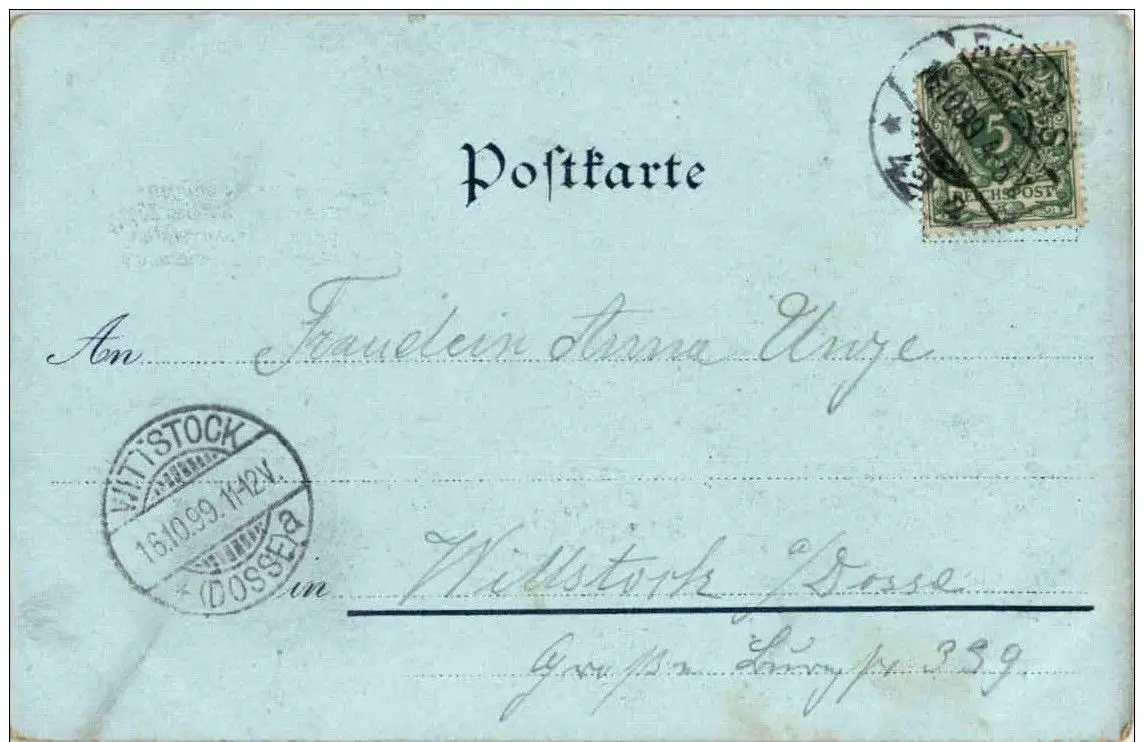 Postkarte
5
REICHSPOST
An Fraulein Anna Unge
WITTSTOCK
16.10.99. 11-12V.
* (DOSSE) a
in Wittstock a/Dosse
Große Burgstr 339